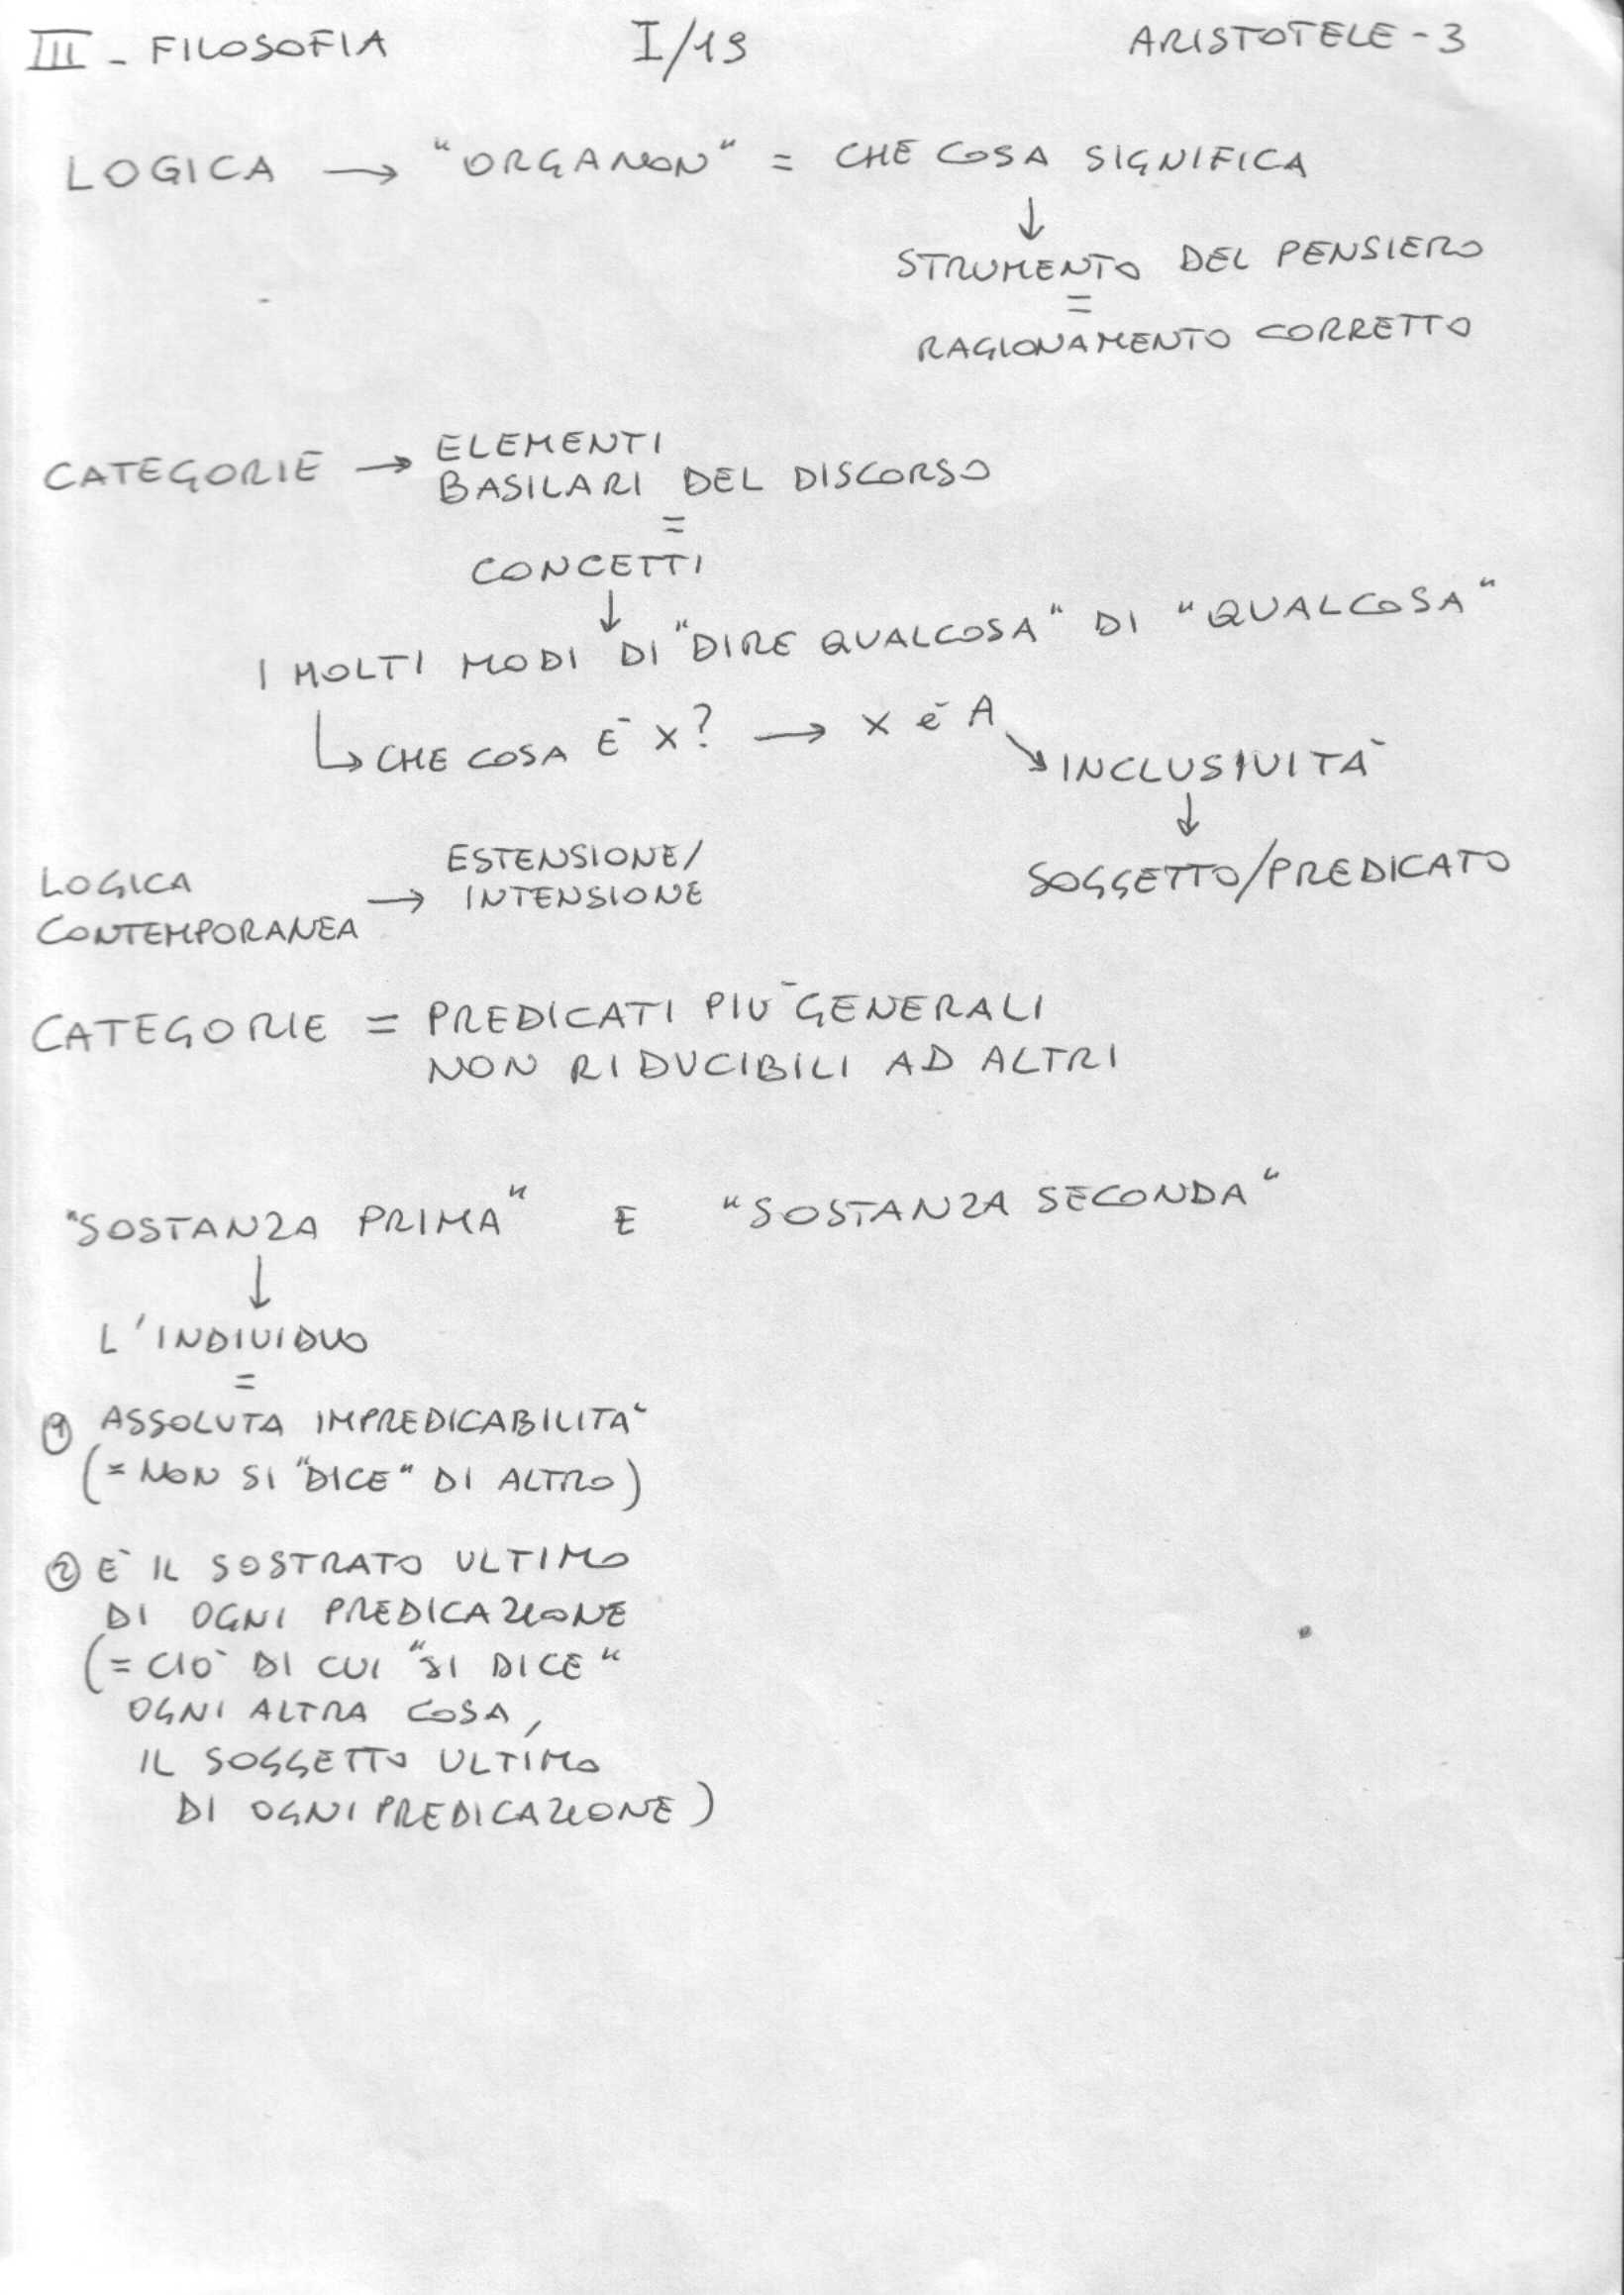 III - FILOSOFIA I/19 ARISTOTELE - 3
LOGICA → "ORGANON" = CHE COSA SIGNIFICA
↓
STRUMENTO DEL PENSIERO
=
RAGIONAMENTO CORRETTO
CATEGORIE → ELEMENTI
BASILARI DEL DISCORSO
=
CONCETTI
↓
I MOLTI MODI DI "DIRE QUALCOSA" DI "QUALCOSA"
↳ CHE COSA È X? → X è A
↘ INCLUSIVITÀ
↓
SOGGETTO/PREDICATO
LOGICA
CONTEMPORANEA → ESTENSIONE/
INTENSIONE
CATEGORIE = PREDICATI PIÙ GENERALI
NON RIDUCIBILI AD ALTRI
"SOSTANZA PRIMA" E "SOSTANZA SECONDA"
↓
L'INDIVIDUO
=
① ASSOLUTA IMPREDICABILITÀ
(= NON SI "DICE" DI ALTRO)
② È IL SOSTRATO ULTIMO
DI OGNI PREDICAZIONE
(= CIÒ DI CUI "SI DICE"
OGNI ALTRA COSA,
IL SOGGETTO ULTIMO
DI OGNI PREDICAZIONE)